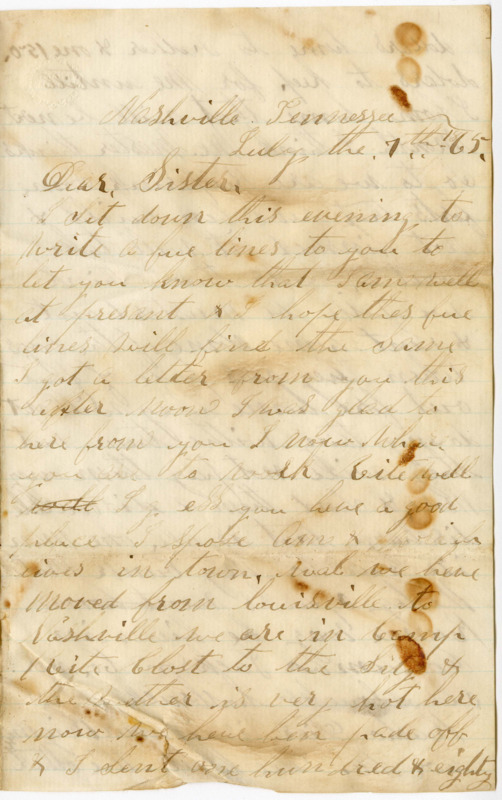 Nashville Tennessee
July the 7th '65.
Dear, Sister.
I Sit down this evening to
write a fue lines to you to
let you know that I am well
at present & I hope thes fue
lines Will find the same
I got a letter from you this
after noon I was glad to
here from you I now Whare
you are to work Vite well
I ges you have a good
place I spoke
lives in town, well we have
moved from louisville to
Nashville we are in Camp
Vite Clost to the Sity &
the wether is very hot here
now We have ben pade off
& I Sent one hundred & eighty